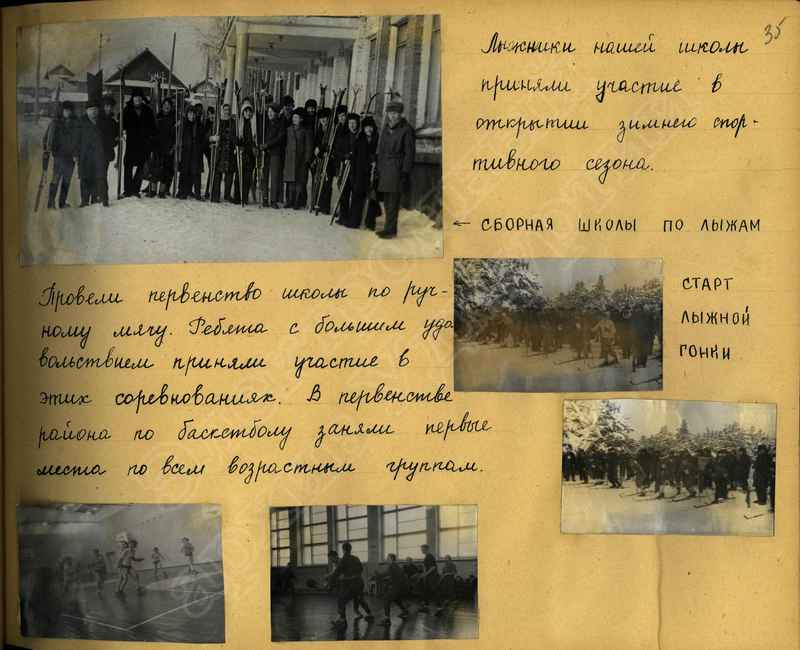 35
Лыжники нашей школы
приняли участие в
открытии зимнего спор-
тивного сезона.
← СБОРНАЯ ШКОЛЫ ПО ЛЫЖАМ
СТАРТ
ЛЫЖНОЙ
ГОНКИ
Провели первенство школы по руч-
ному мячу. Ребята с большим удо
вольствием приняли участие в
этих соревнованиях. В первенстве
района по баскетболу заняли первые
места по всем возрастным группам.